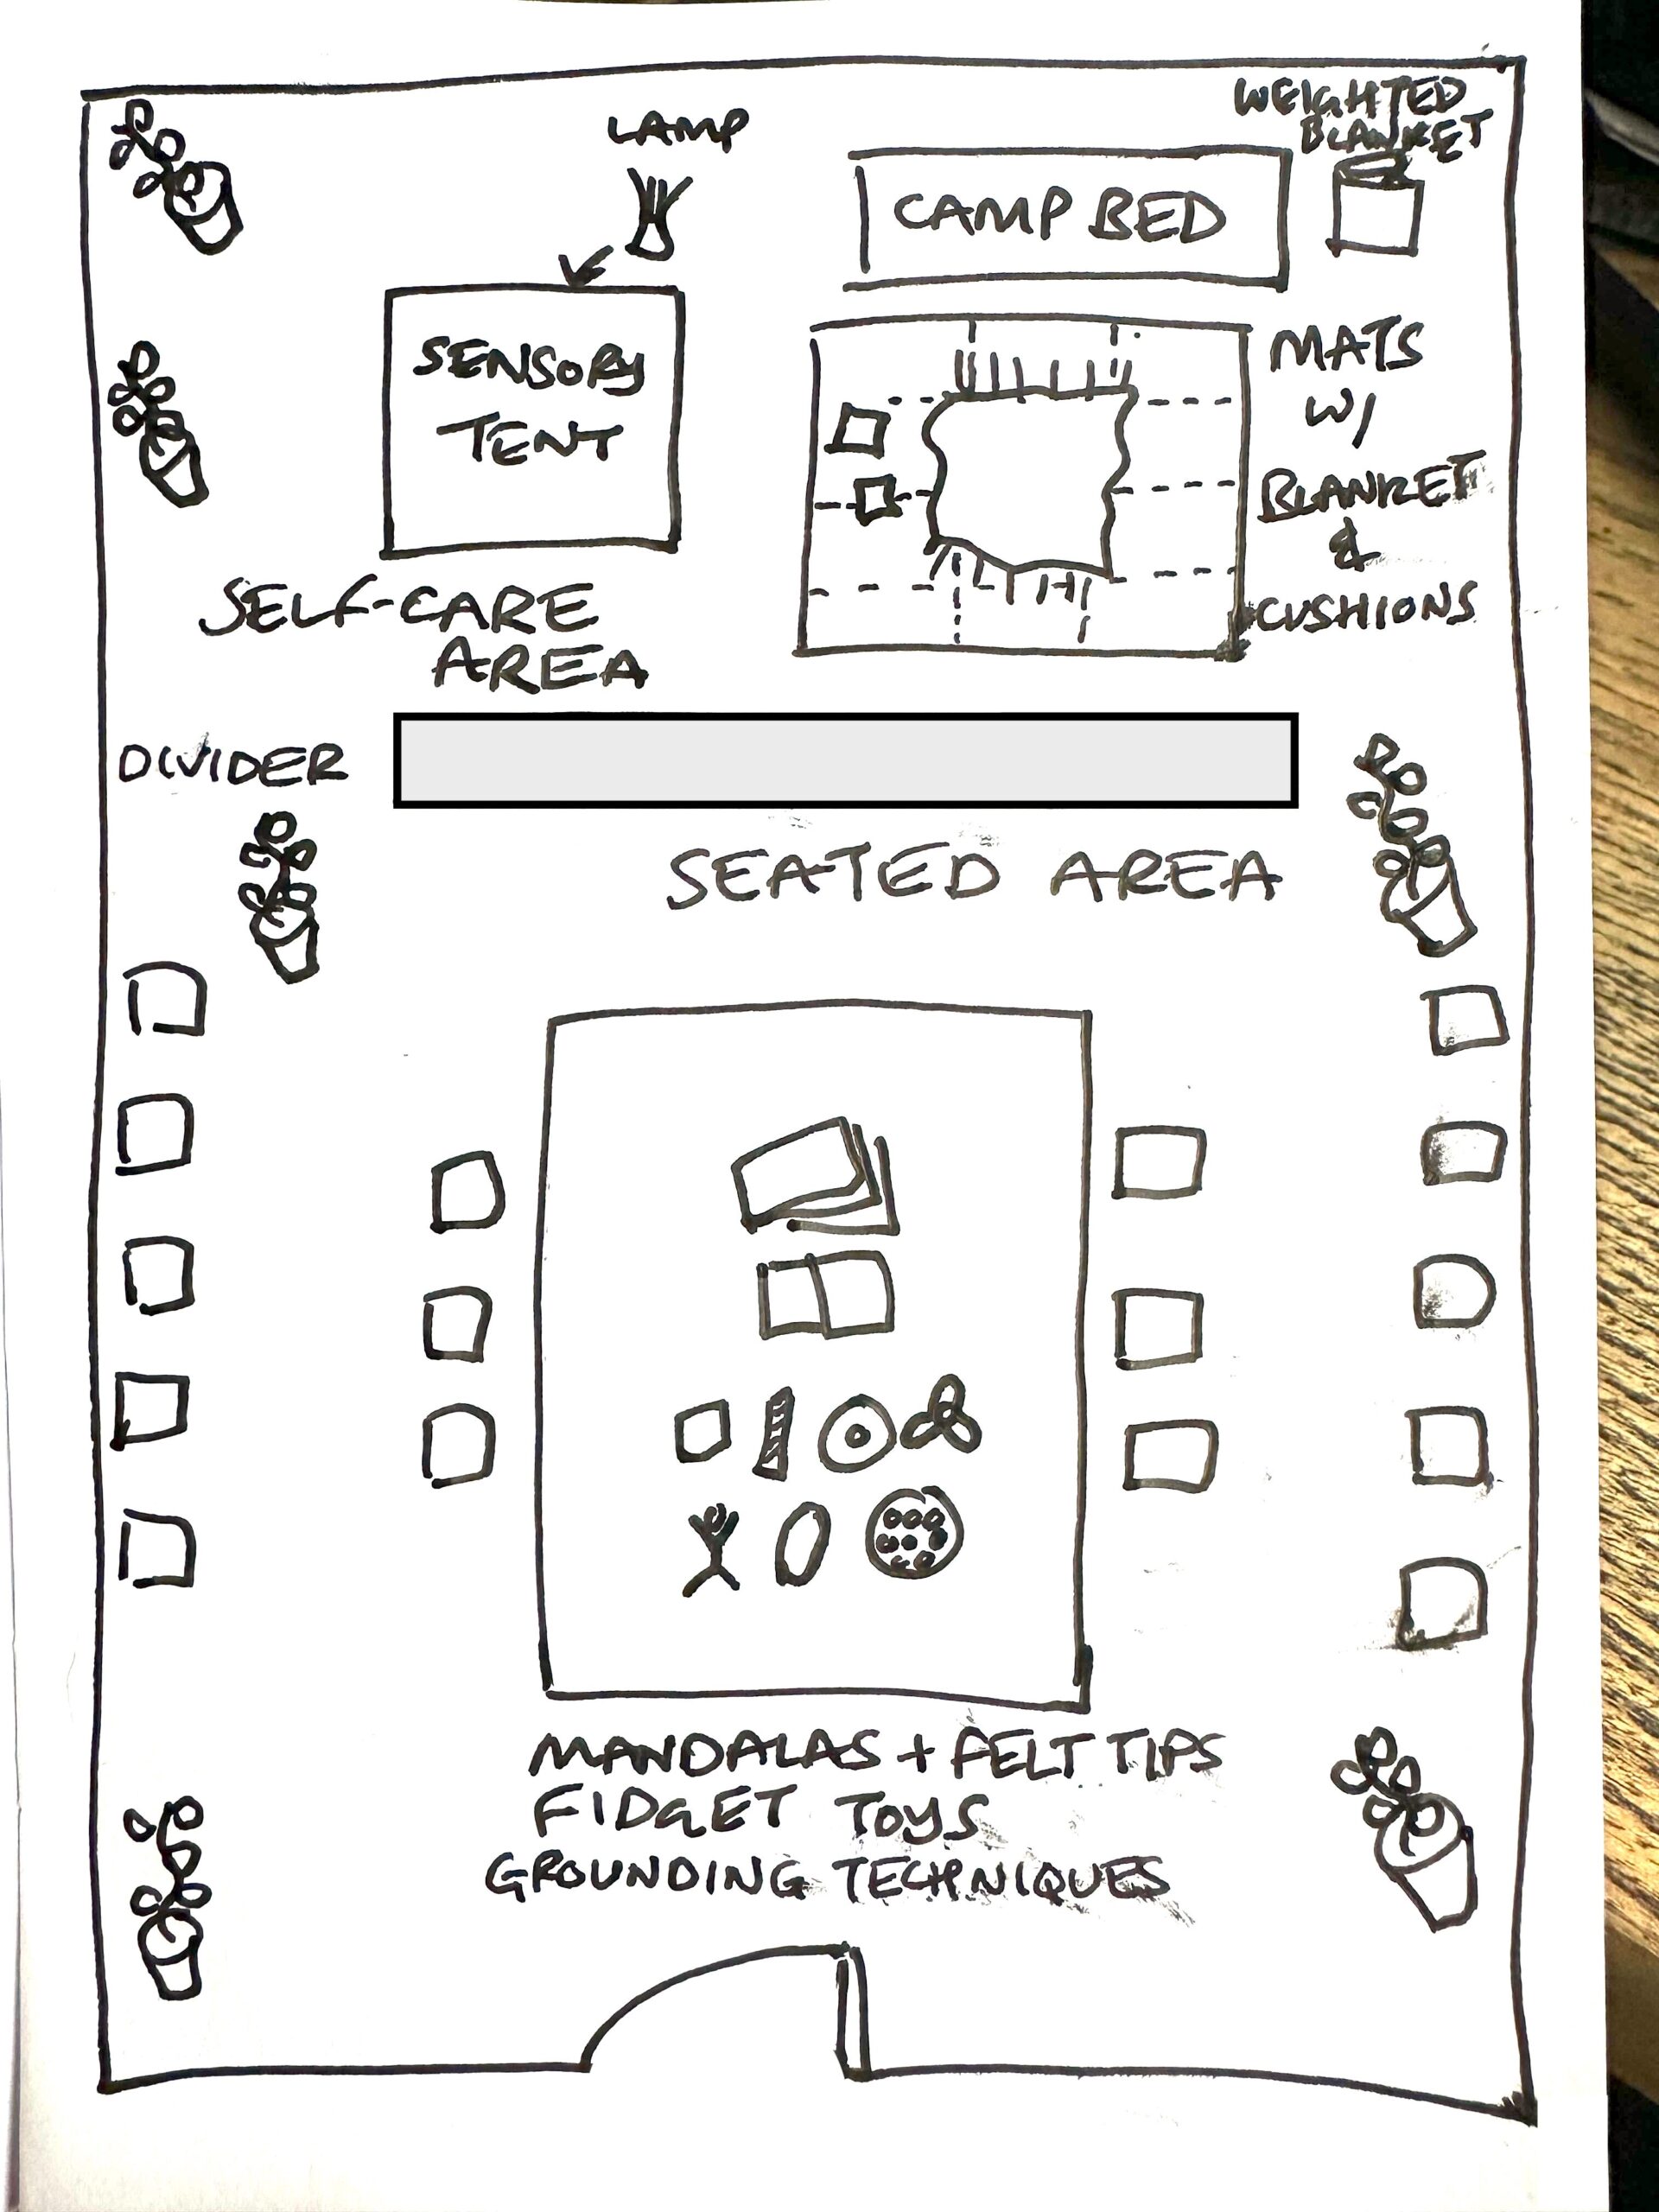 LAMP
WEIGHTED
BLANKET
CAMP BED
SENSORY
TENT
MATS
W/
BLANKET
&
CUSHIONS
SELF-CARE
AREA
DIVIDER
SEATED AREA
MANDALAS + FELT TIPS
FIDGET TOYS
GROUNDING TECHNIQUES